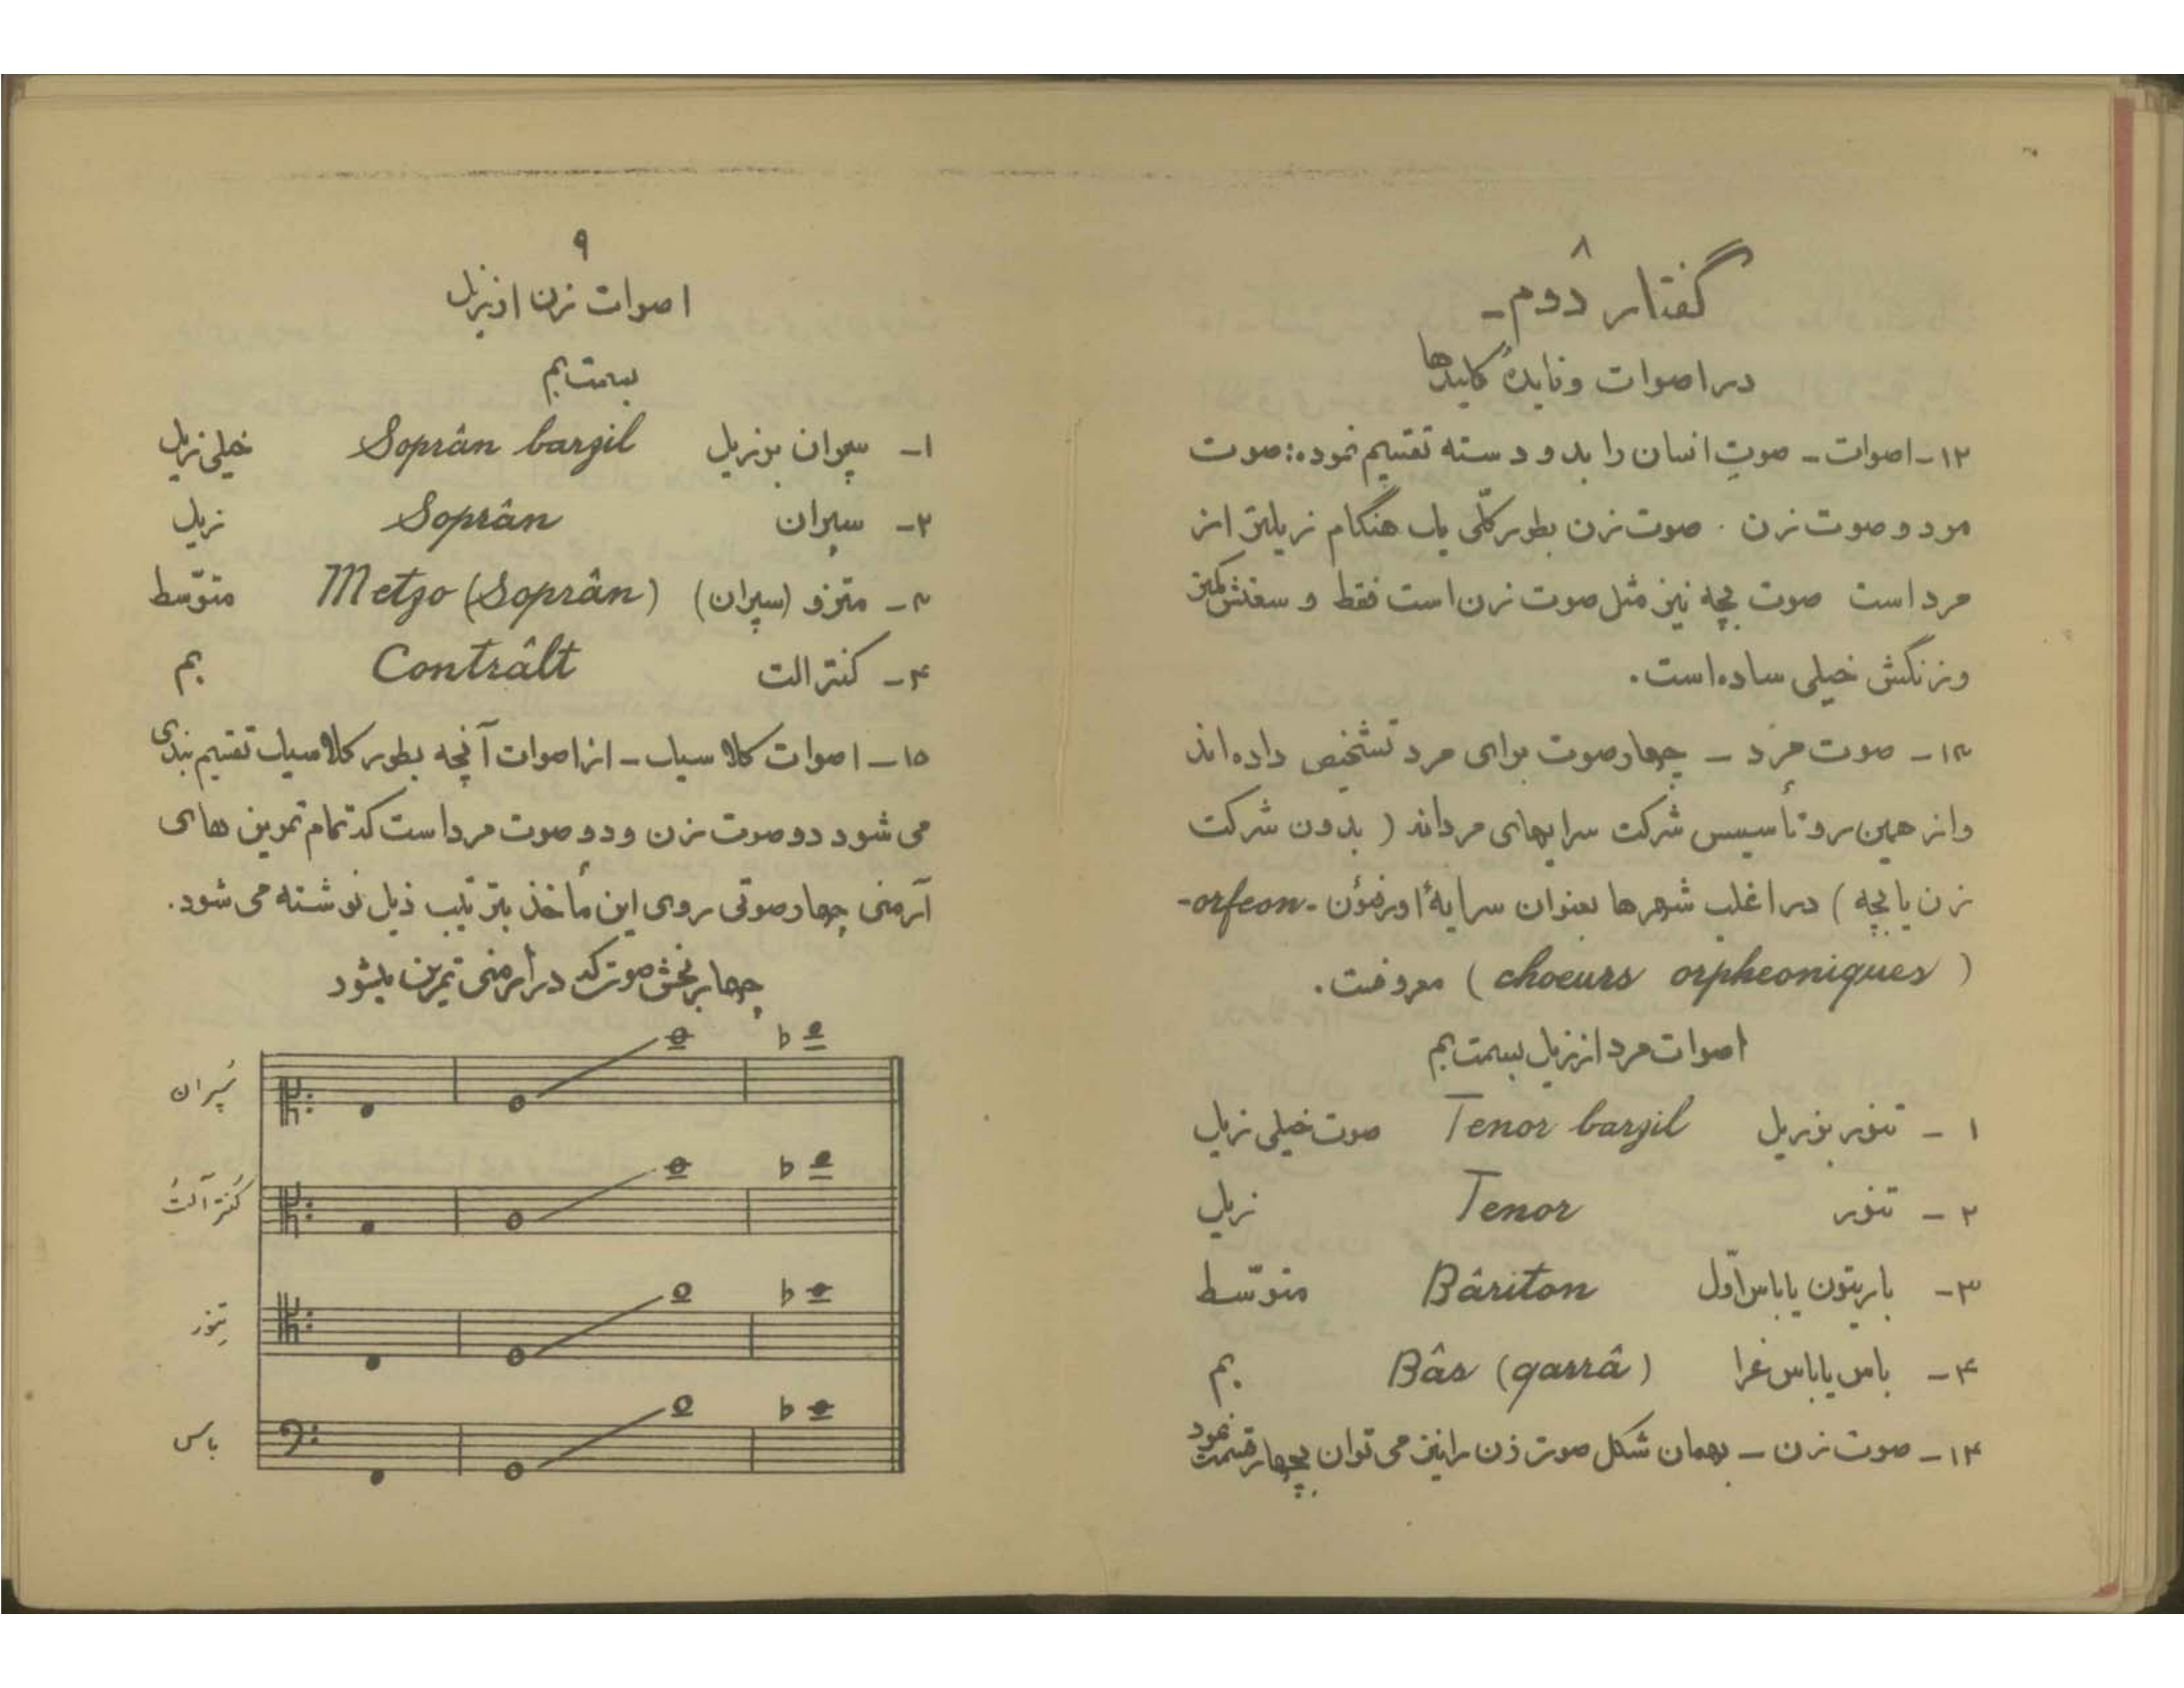 ۸
گفتار دوم ـ
در اصوات و فایدهٔ کلیدها
۱۲ـ اصوات ـ صوتِ انسان را بدو دسته تقسیم نموده: صوت
مرد و صوت زن . صوت زن بطور کلّی یک هنگام زیلتر از
مرد است صوت بچه نیز مثل صوت زن است فقط و سعتش کمتر
و زنگش خیلی ساده است.
۱۳ـ صوت مرد ـ چهار صوت برای مرد تشخیص داده اند
و از همین رو تأسیس شرکت سرایهای مردانه ( بدون شرکت
زن یا بچه ) در اغلب شهرها بعنوان سرایهٔ اورفئون -orfeon-
( choeurs orpheoniques ) معروفست.
اصوات مرد از زیل بسمت بم
۱ ـ تنور برزیل Tenor barzil صوت خیلی زیل
۲ ـ تنور Tenor زیل
۳ـ باریتون یا باس اوّل Bâriton متوسّط
۴ـ باس یا باس غرا Bâs (qarrâ) بم
۱۴ـ صوت زن ـ بهمان شکل صوت زن را نیز می توان بچهار قسمت نمود
۹
اصوات زن از زیل
بسمت بم
۱ـ سپران برزیل Soprân barzil خیلی زیل
۲ـ سپران Soprân زیل
۳ـ متزو (سپران) Metzo (Soprân) متوسّط
۴ـ کنترالت Contrâlt بم
۱۵ـ اصوات کلاسیک ـ از اصوات آنچه بطور کلاسیک تقسیم بندی
می شود دو صوت زن و دو صوت مرد است که تمام تمرین های
آرمنی چهار صوتی روی این مأخذ بترتیب ذیل نوشته می شود.
چهار بخش صوت که در آرمنی تمرین میشود
سُپران
کُنتر آلتُ
تِنور
باس